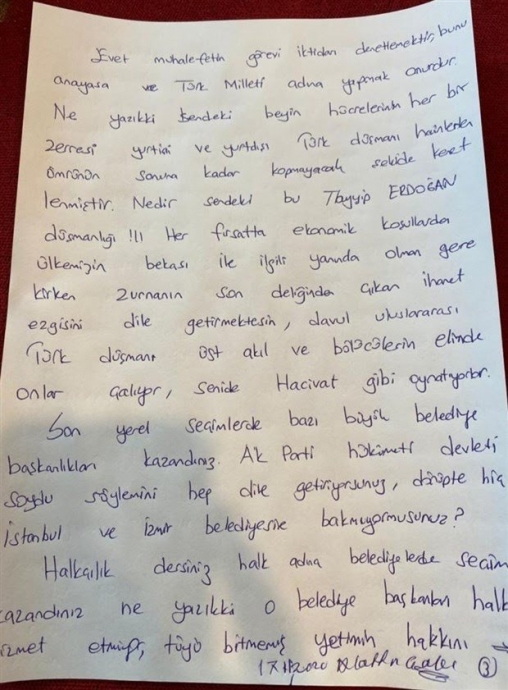 Evet muhalefetin görevi iktidarı denetlemektir, bunu
anayasa ve Türk Milleti adına yapmak onurdur.
Ne yazıkki sendeki beyin hücrelerinin her bir
zerresi yurtiçi ve yurtdışı Türk düşmanı hainlerden
ömrünün sonuna kadar kopmayacak şekilde kenet
lenmiştir. Nedir sendeki bu Tayyip ERDOĞAN
düşmanlığı !!! Her fırsatta ekonomik koşullarda
ülkemizin bekası ile ilgili yanında olman gere
kirken zurnanın son deliğinden çıkan ihanet
ezgisini dile getirmektesin, davul uluslararası
Türk düşmanı üst akıl ve bölücülerin elinde
onlar çalıyor, senide Hacivat gibi oynatıyorlar.
Son yerel seçimlerde bazı büyük belediye
başkanlıkları kazandınız. Ak Parti hükümeti devleti
soydu söylemini hep dile getiriyorsunuz, dönüpte hiç
İstanbul ve İzmir belediyesine bakmıyormusunuz?
Halkçılık dersiniz halk adına belediyelerde seçim
kazandınız ne yazıkki o belediye başkanları halk
izmet etmiyor, tüyü bitmemiş yetimin hakkını
17.11.2020 Alaattin Çakıcı 3